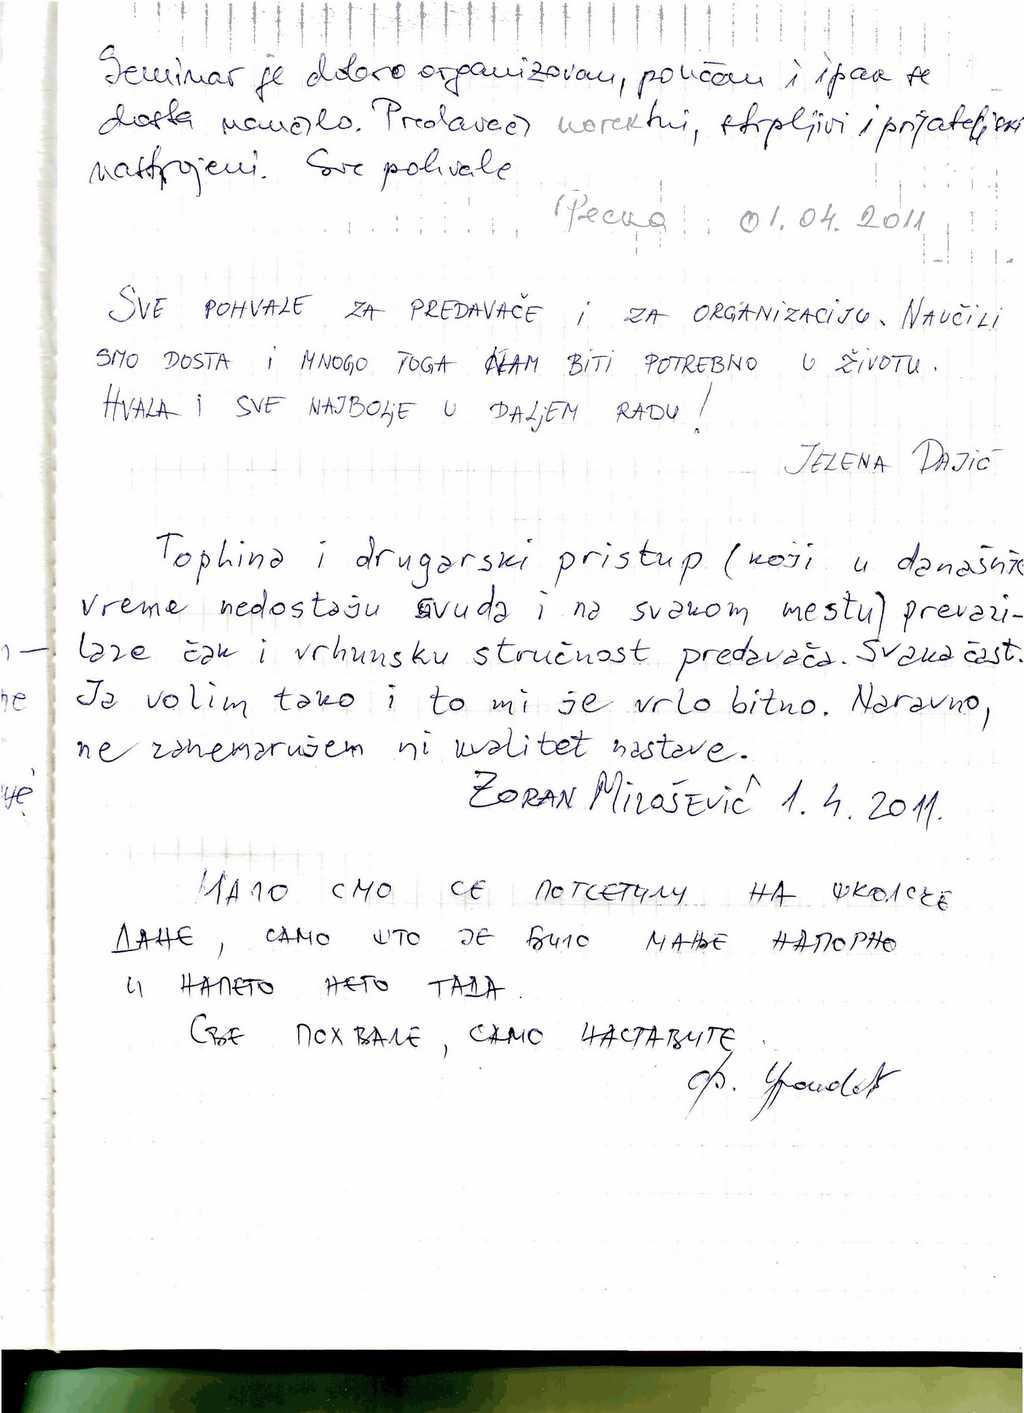 Seminar je dobro organizovan, poučan i ipak se
dosta naučilo. Predavači korektni, strpljivi i prijateljski
nastrojeni. Sve pohvale
01.04.2011
SVE POHVALE ZA PREDAVAČE i ZA ORGANIZACIJU. NAUČILI
SMO DOSTA i MNOGO TOGA ĆE NAM BITI POTREBNO U ŽIVOTU.
HVALA i SVE NAJBOLJE U DALJEM RADU!
JELENA DAJIĆ
Toplina i drugarski pristup (koji u današnje
vreme nedostaju svuda i na svakom mestu) prevazi-
laze čak i vrhunsku stručnost predavača. Svaka čast.
Ja volim tako i to mi je vrlo bitno. Naravno,
ne zanemarujem ni kvalitet nastave.
ZORAN MILOŠEVIĆ 1.4.2011.
МАЛО СМО СЕ ПОТСЕТИЛИ НА ШКОЛСКЕ
ДАНЕ, САМО ШТО ЈЕ БИЛО МАЊЕ НАПОРНО
И НАПЕТО НЕГО ТАДА.
СВЕ ПОХВАЛЕ, САМО НАСТАВИТЕ.